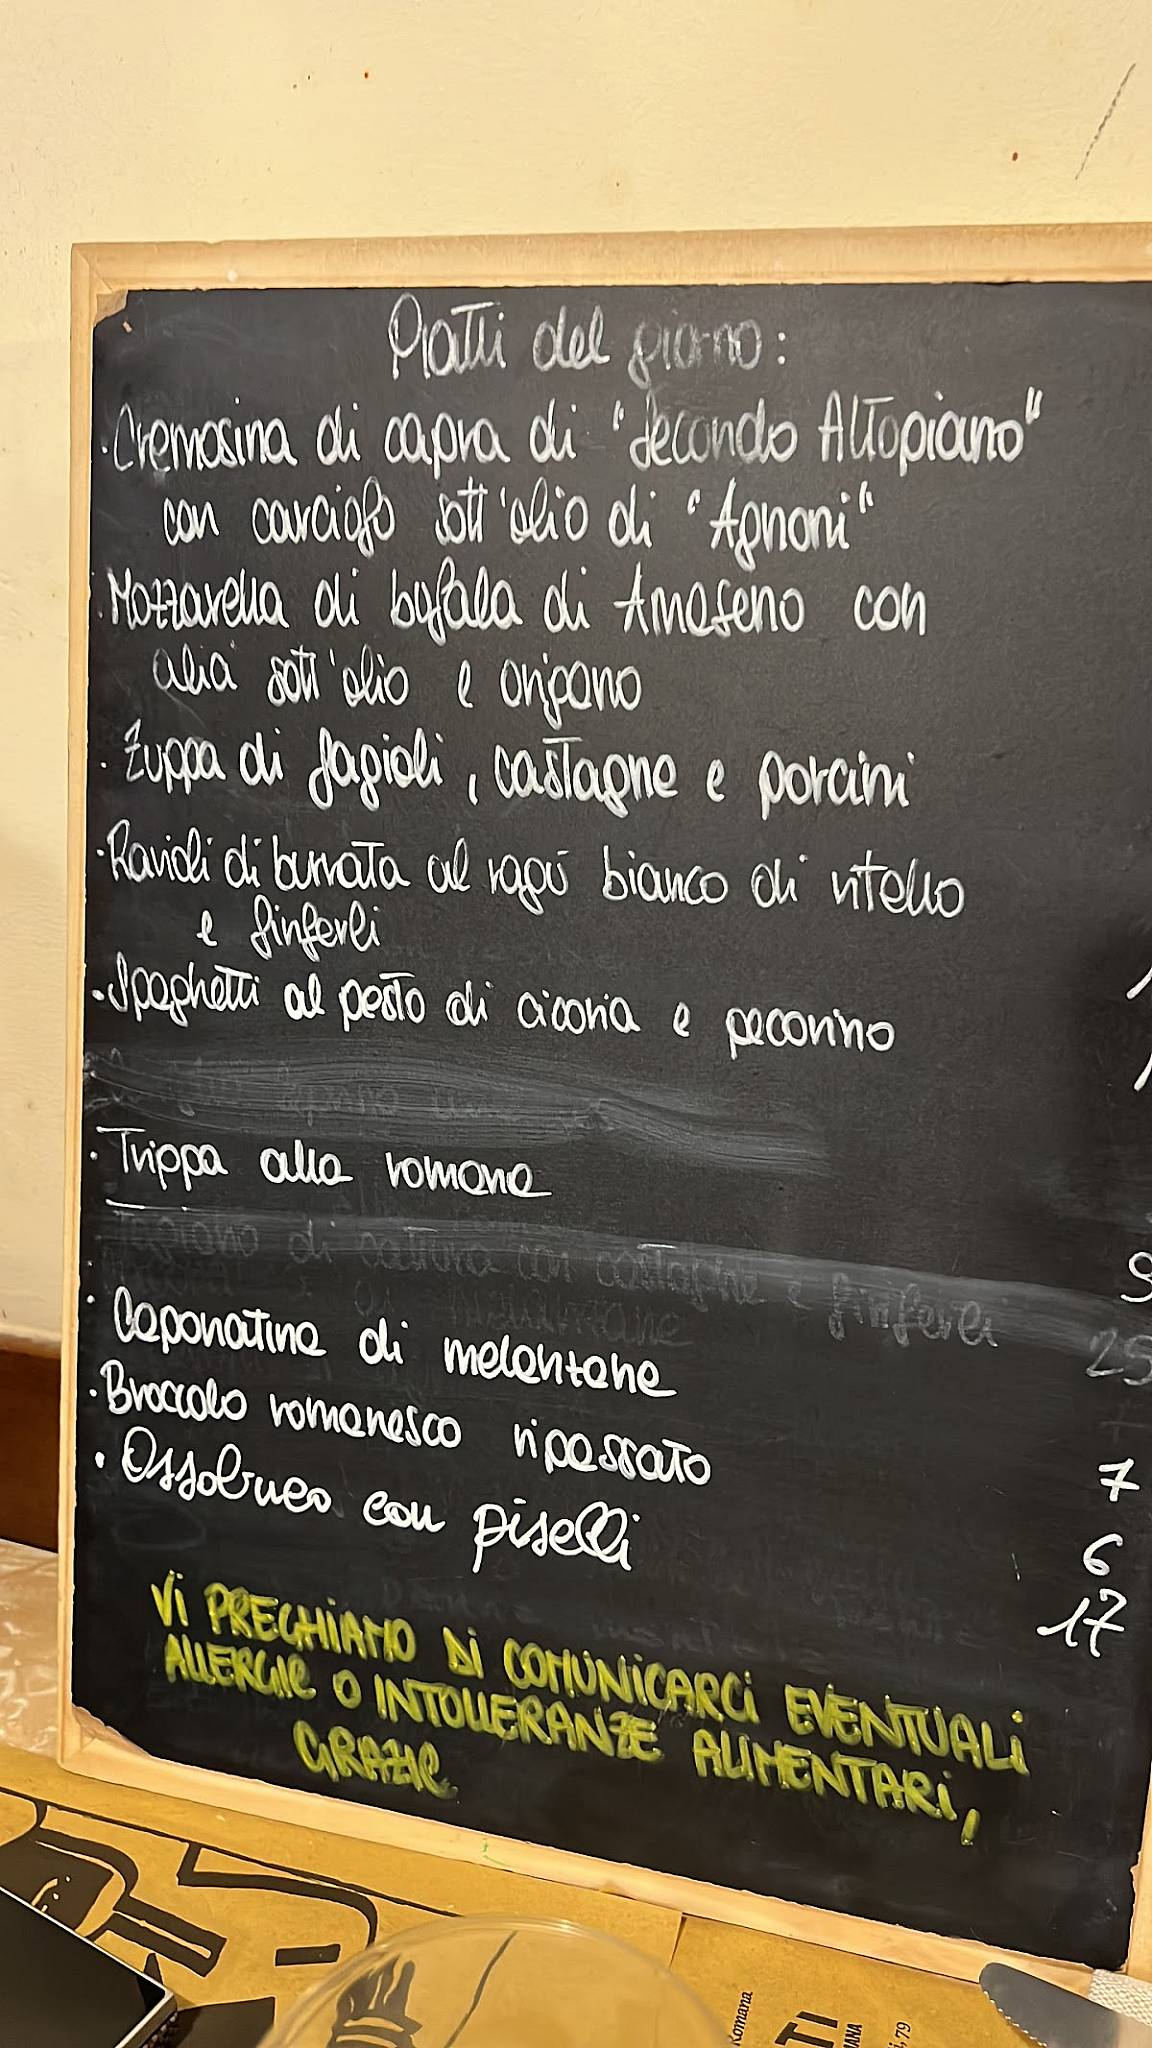 Piatti del giorno:
· Cremosina di capra di "Secondo Altopiano"
con carciofo sott'olio di "Agnoni"
· Mozzarella di bufala di Amaseno con
alici sott'olio e origano
· Zuppa di fagioli, castagne e porcini
· Ravioli di burrata al ragù bianco di vitello
e finferli
· Spaghetti al pesto di cicoria e pecorino
· Trippa alla romana 9
di con castagne e finferli 25
· Caponatina di melanzane 7
· Broccolo romanesco ripassato 6
· Ossobuco con piselli 17
Vi PREGHiAMO Di COMUNiCARCi EVENTUALi
ALLERGIE O INTOLLERANZE ALIMENTARi,
GRAZIE
Romana
TI
79